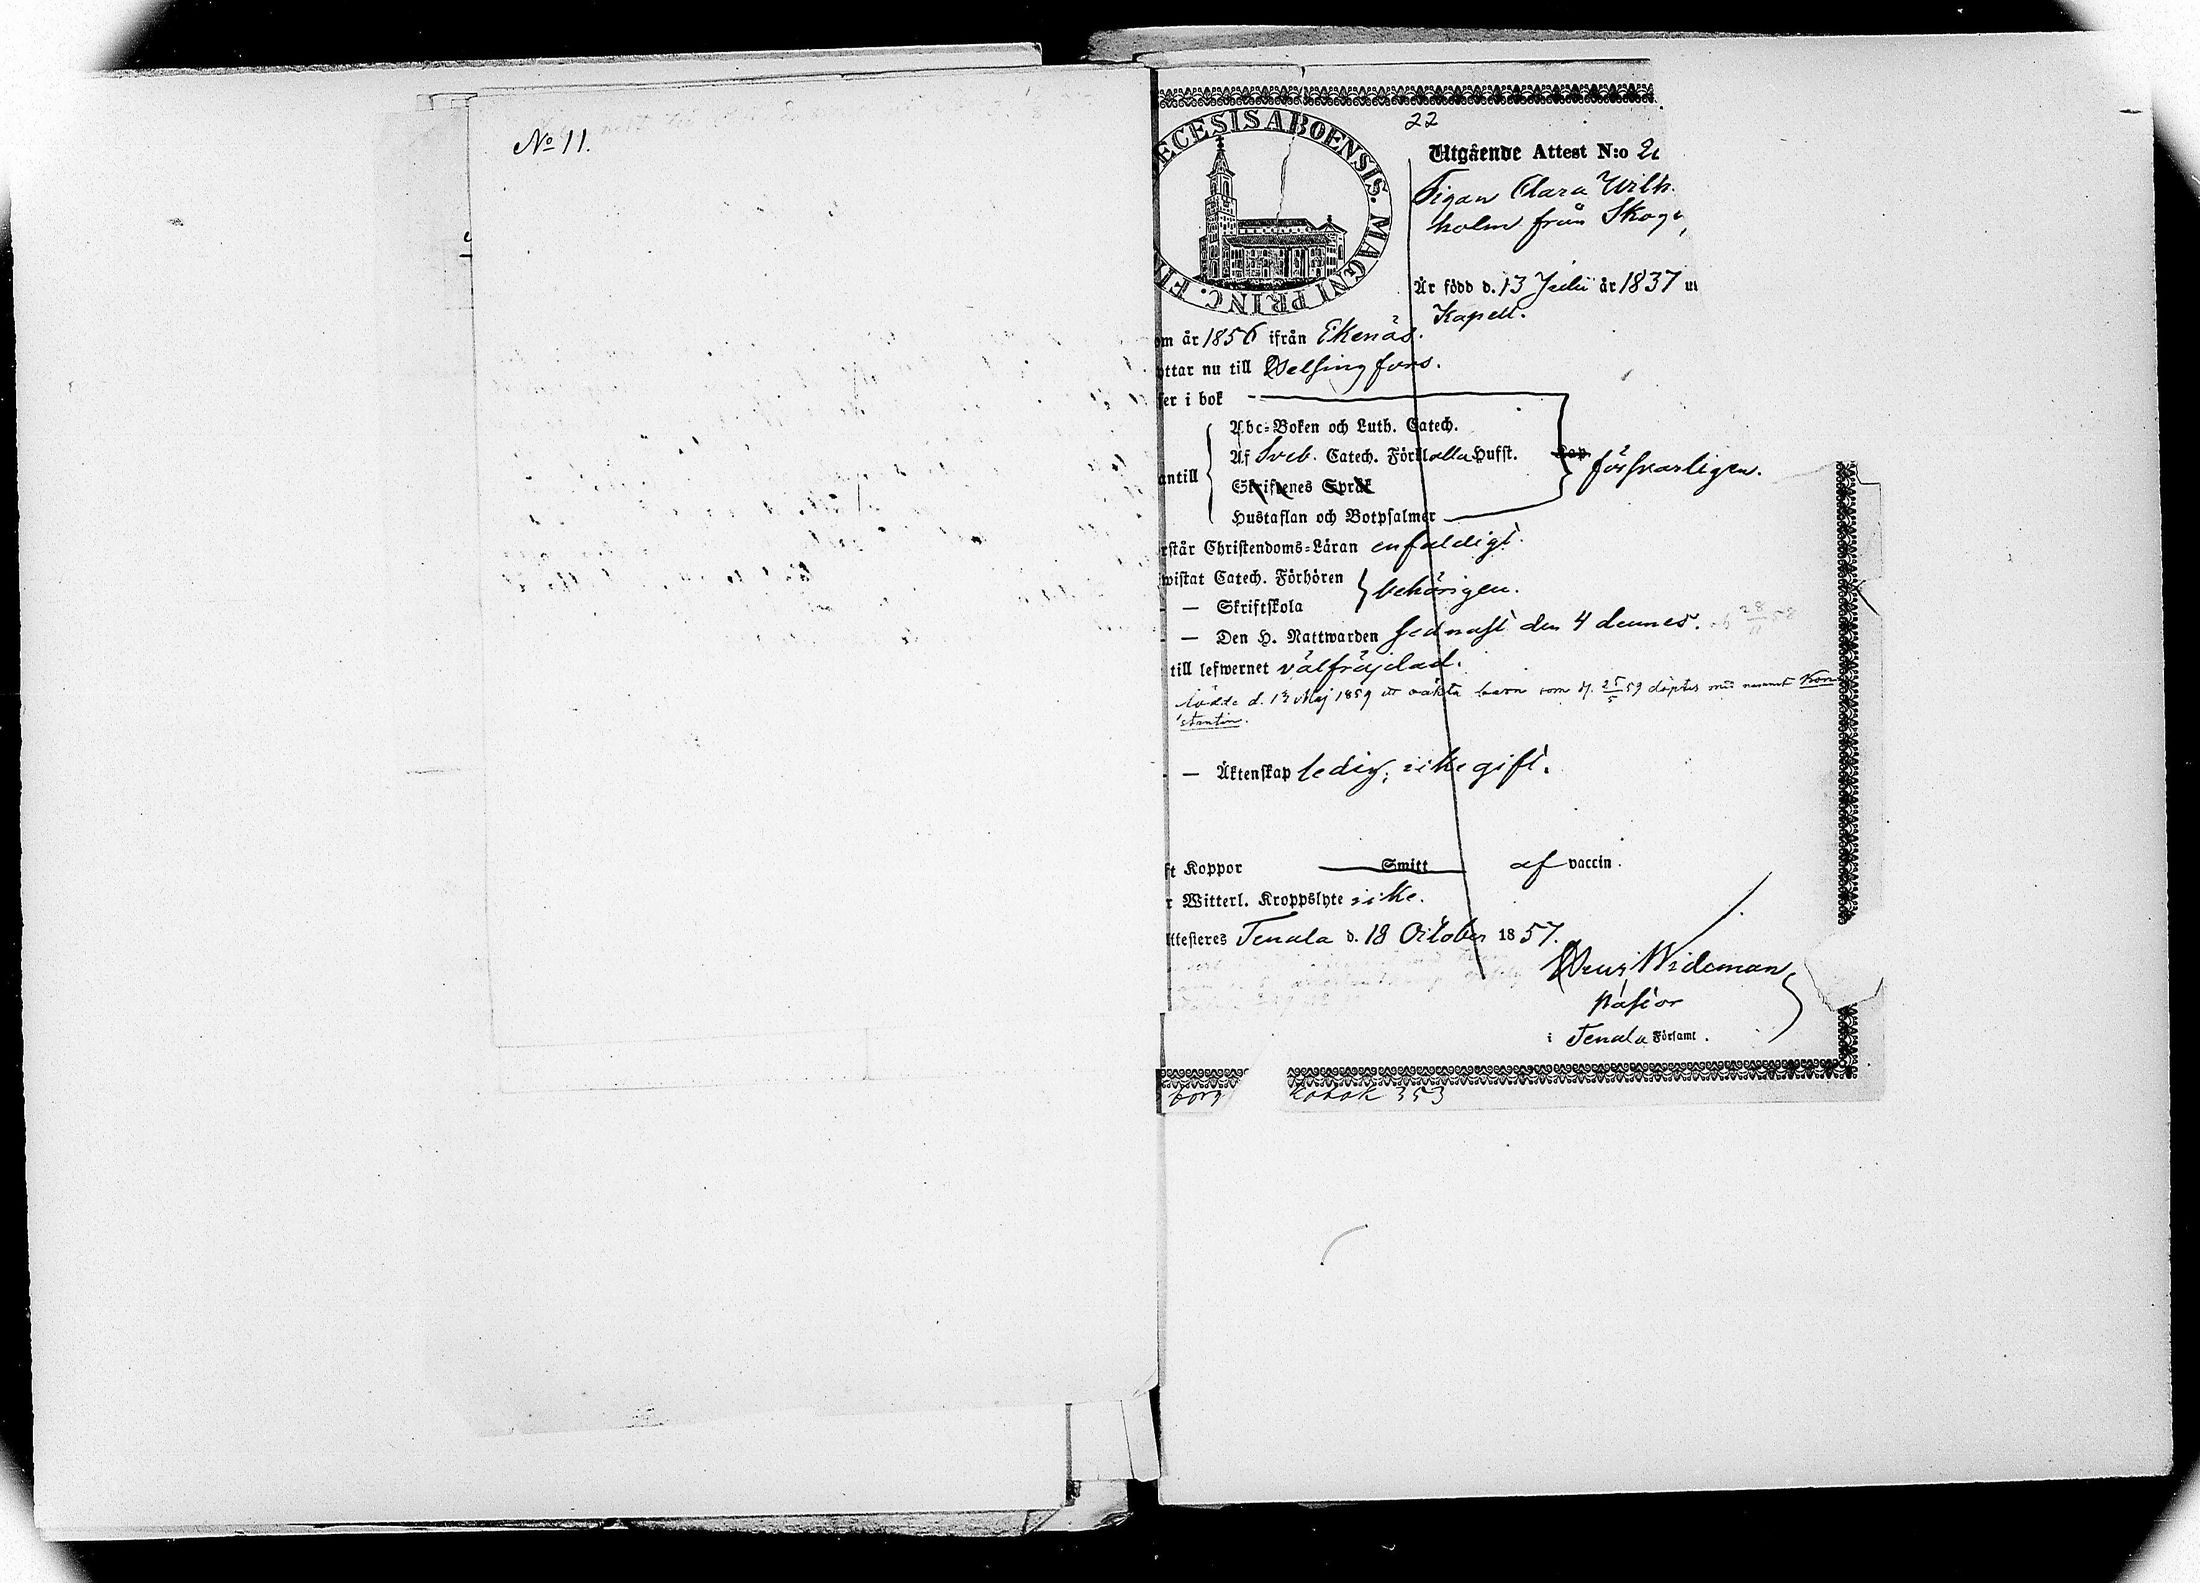 No 11.
22
ECESIS ABOENSIS. MAGNI PRINC. FI
Utgående Attest N:o 2
Pigan Clara Wilh.
holm från Skog
Är född d. 13 Julii år 1837
Kapell.
om år 1856 ifrån Ekenäs.
ttar nu till Helsingfors.
ser i bok
Abc-Boken och Luth. Catech.
Af Sveb. Catech. Förkl alla Husst. Cap. försvarligen.
antill
Skriftenes Språk
Hustaflan och Botpsalmer
rstår Christendoms-Läran enfaldigt.
wistat Catech. Förhören
behörigen.
— Skriftskola
— Den H. Nattwarden sednast den 4 dennes. 28/11 58
till lefwernet välfräjdad.
födde d. 13 Maj 1859 ett oäkta barn som d. 25/5 59 döptes med namnet Kon-
stantin.
— Äktenskap ledig, icke gift.
ft Koppor Smitt af vaccin.
r Witterl. Kroppslyte icke.
ttesteres Tenala d. 18 October 1857.
Wideman
Pastor
i Tenala Församl.
borg kobok 353